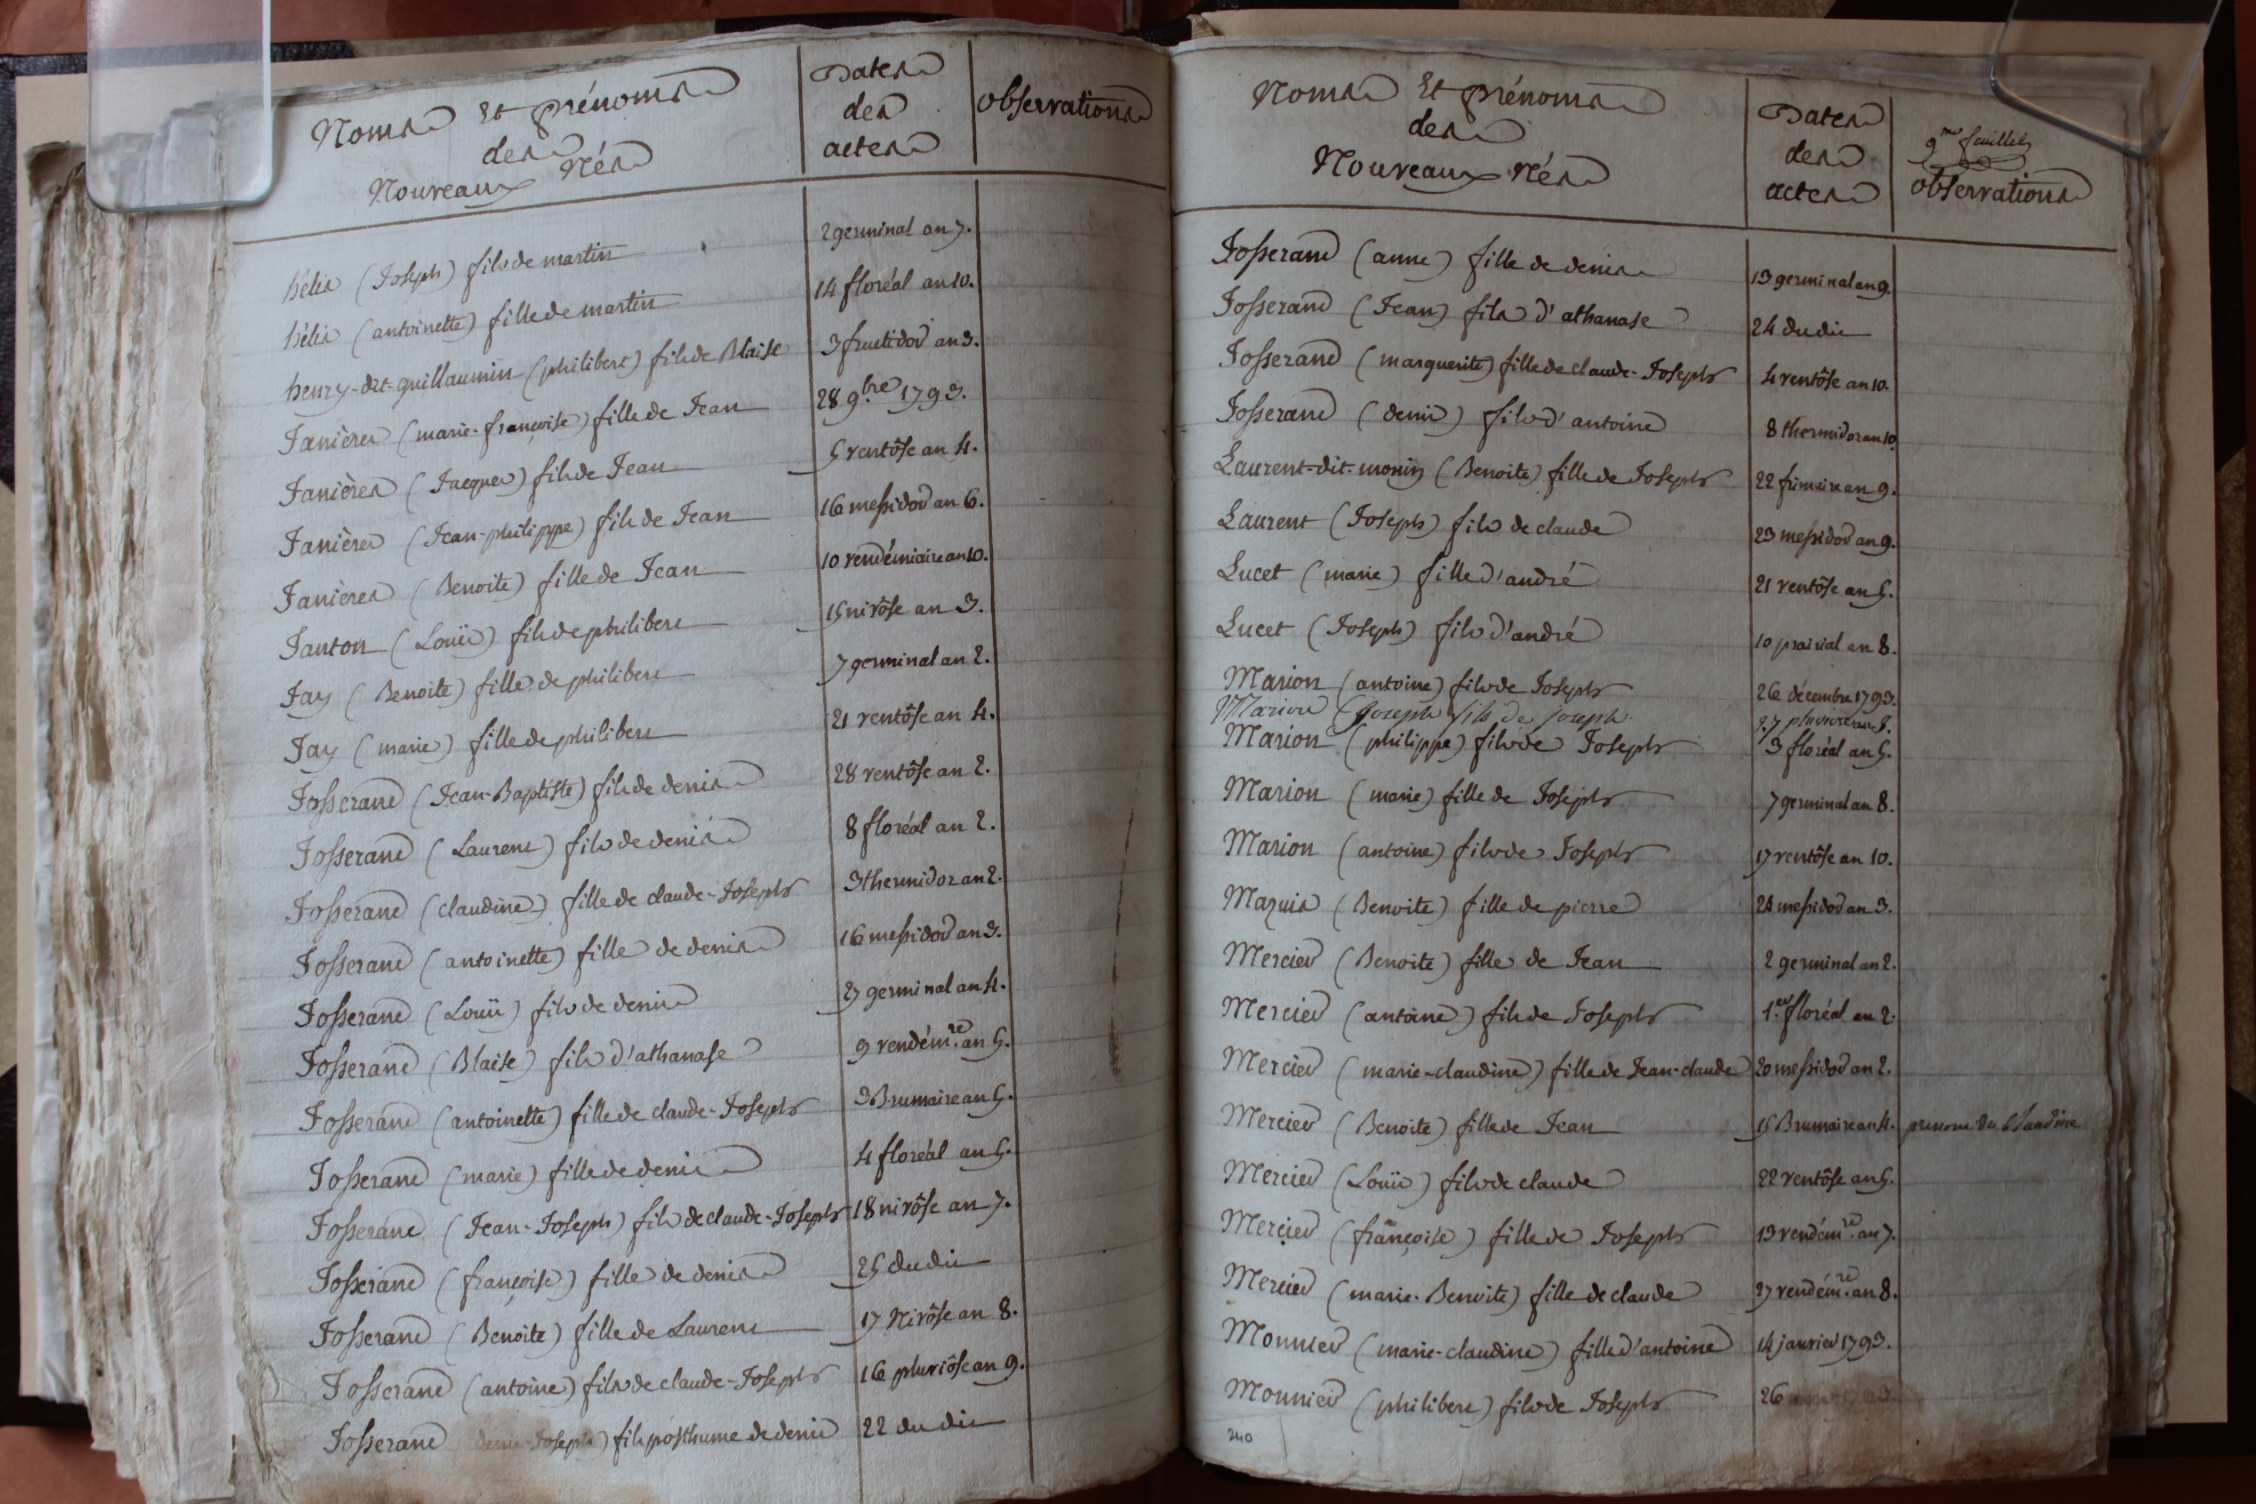 Noms Et prénoms
des
Nouveaux Nés
Dates
des
actes
observations
hélis (Joseph) fils de martin 2 germinal an 7.
hélis (antoinette) fille de martin 14 floréal an 10.
henry-dit-guillaumin (philibert) fils de Blaise 3 fructidor an 3.
Janières (marie-françoise) fille de Jean 28 9.bre 1793.
Janières (Jacques) fils de Jean 5 ventôse an 4.
Janières (Jean-philippe) fils de Jean 16 messidor an 6.
Janières (Benoite) fille de Jean 10 vendémiaire an 10.
Janton (Louis) fils de philibert 15 nivôse an 3.
Jay (Benoite) fille de philibert 7 germinal an 2.
Jay (marie) fille de philibert 21 ventôse an 4.
Josserand (Jean-Baptiste) fils de denis 28 ventôse an 2.
Josserand (Laurent) fils de denis 8 floréal an 2.
Josserand (claudine) fille de claude-Joseph 3 thermidor an 2.
Josserand (antoinette) fille de denis 16 messidor an 3.
Josserand (Louis) fils de denis 27 germinal an 4.
Josserand (Blaise) fils d'athanase 9 vendém.re an 5.
Josserand (antoinette) fille de claude-Joseph 3 Brumaire an 5.
Josserand (marie) fille de denis 4 floréal an 5.
Josserand (Jean-Joseph) fils de claude-Joseph 18 nivôse an 7.
Josserand (françoise) fille de denis 25 du dit
Josserand (Benoite) fille de Laurent 17 Nivôse an 8.
Josserand (antoine) fils de claude-Joseph 16 pluviôse an 9.
Josserand (denis-Joseph) fils posthume de denis 22 du dit
Noms Et prénoms
des
Nouveaux Nés
Dates
des
actes
9me feuillet
observations
Josserand (anne) fille de denis 13 germinal an 9.
Josserand (Jean) fils d'athanase 24 du dit
Josserand (marguerite) fille de claude-Joseph 4 ventôse an 10.
Josserand (denis) fils d'antoine 8 thermidor an 10.
Laurent-dit-monin (Benoite) fille de Joseph 22 frimaire an 9.
Laurent (Joseph) fils de claude 23 messidor an 9.
Lucet (marie) fille d'andré 21 ventôse an 5.
Lucet (Joseph) fils d'andré 10 prairial an 8.
Marion (antoine) fils de Joseph 26 décembre 1793.
Marion (joseph fils de joseph 27 pluviose an 3.
Marion (philippe) fils de Joseph 3 floréal an 5.
Marion (marie) fille de Joseph 7 germinal an 8.
Marion (antoine) fils de Joseph 17 ventôse an 10.
Maquis (Benoite) fille de pierre 24 messidor an 3.
Mercier (Benoite) fille de Jean 2 germinal an 2.
Mercier (antoine) fils de Joseph 1.er floréal an 2.
Mercier (marie-claudine) fille de Jean-claude 20 messidor an 2.
Mercier (Benoite) fille de Jean 15 Brumaire an 4. Claudine
Mercier (Louis) fils de claude 22 ventôse an 5.
Mercier (françoise) fille de Joseph 13 vendém.re an 7.
Mercier (marie-Benoite) fille de claude 27 vendém.re an 8.
Monnier (marie-claudine) fille d'antoine 14 janvier 1793.
Monnier (philibert) fils de Joseph 26
240